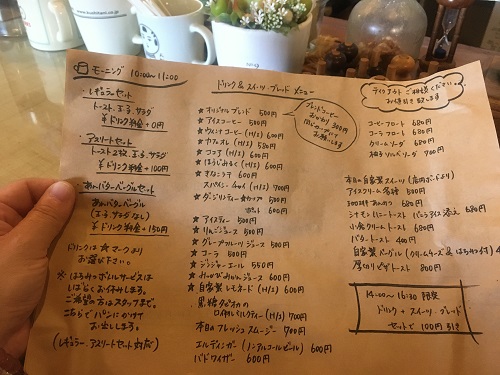 www.kushitani.co.jp
モーニング 10:00〜11:00
・レギュラーセット
トースト、玉子、サラダ
¥ドリンク料金+0円
・アスリートセット
トースト2枚、玉子、サラダ
¥ドリンク料金+100円
・あんバターベーグルセット
あんバターベーグル
(玉子、サラダなし)
¥ドリンク料金+150円
ドリンクは★マークより
お選び下さい。
※はちみつボトルサービスは
しばらくお休みします。
ご希望の方はスタッフまで。
こちらでパンにかけて
お出しします。
(レギュラー、アスリートセット対応)
ドリンク&スイーツ・ブレッド メニュー
★オリジナルブレンド 500円
★アイスコーヒー 500円
★ウィンナコーヒー (H/I) 600円
★カフェオレ (H/I) 580円
★ココア (H/I) 600円
★ほうじみるく (H/I) 600円
★きなこラテ 600円
スパイシーチャイ (H/I) 700円
★ダージリンティー★カップ 500円
ポット 600円
★アイスティー 500円
★りんごジュース 500円
★グレープフルーツジュース 500円
★コーラ 500円
★ジンジャーエール 550円
★みっかびみかんジュース 600円
★自家製レモネード (H/I) 600円
黒糖タピオカの
ロイヤルミルクティー (H/I) 700円
本日のフレッシュスムージー 700円
エルディンガー (ノンアルコールビール) 600円
バドワイザー 600円
ブレンドコーヒー
おかわり 300円
テイクアウトご相談ください
お値引き致します
コーヒーフロート 680円
コーラフロート 680円
クリームソーダ 680円
柚子ソルベソーダ 700円
本日の自家製スイーツ (店内ボードより)
アイスクリーム各種 500円
シナモンハニートースト バニラアイス添え 680円
小倉クリームトースト 680円
バタートースト 400円
自家製ベーグル (クリームチーズ&はちみつ付)
厚切りピザトースト 800円
14:00〜16:30 限定
ドリンク+スイーツ・ブレッド
セットで100円引き